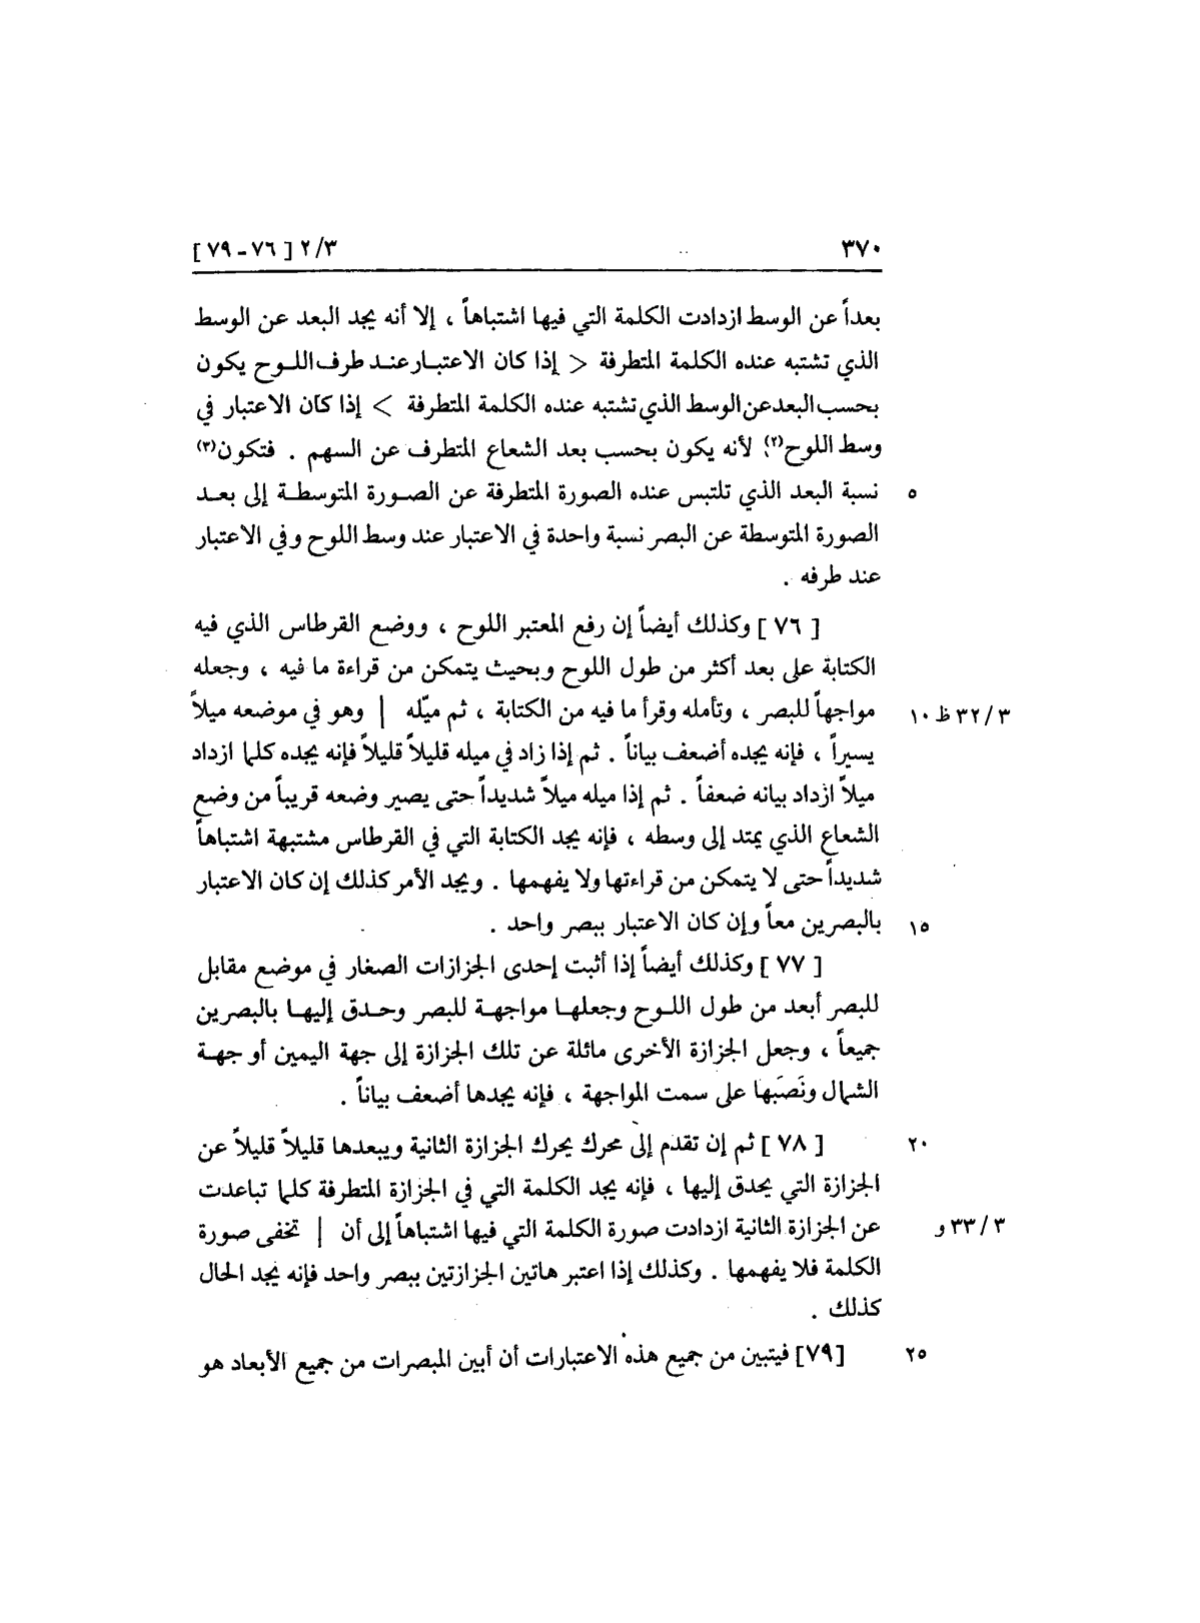 ٣٧٠ ٢/٣ [ ٧٦ - ٧٩ ]
بعداً عن الوسط ازدادت الكلمة التي فيها اشتباهاً ، إلا أنه يجد البعد عن الوسط
الذي تشتبه عنده الكلمة المتطرفة < إذا كان الاعتبار عند طرف اللوح يكون
بحسب البعد عن الوسط الذي تشتبه عنده الكلمة المتطرفة > إذا كان الاعتبار في
وسط اللوح(٢)؛ لأنه يكون بحسب بعد الشعاع المتطرف عن السهم . فتكون(٣)
٥ نسبة البعد الذي تلتبس عنده الصورة المتطرفة عن الصورة المتوسطة إلى بعد
الصورة المتوسطة عن البصر نسبة واحدة في الاعتبار عند وسط اللوح وفي الاعتبار
عند طرفه .
[ ٧٦ ] وكذلك أيضاً إن رفع المعتبر اللوح ، ووضع القرطاس الذي فيه
الكتابة على بعد أكثر من طول اللوح وبحيث يتمكن من قراءة ما فيه ، وجعله
٣ / ٣٢ ظ ١٠ مواجهاً للبصر ، وتأمله وقرأ ما فيه من الكتابة ، ثم ميّله | وهو في موضعه ميلاً
يسيراً ، فإنه يجده أضعف بياناً . ثم إذا زاد في ميله قليلاً قليلاً فإنه يجده كلما ازداد
ميلاً ازداد بيانه ضعفاً . ثم إذا ميله ميلاً شديداً حتى يصير وضعه قريباً من وضع
الشعاع الذي يمتد إلى وسطه ، فإنه يجد الكتابة التي في القرطاس مشتبهة اشتباهاً
شديداً حتى لا يتمكن من قراءتها ولا يفهمها . ويجد الأمر كذلك إن كان الاعتبار
١٥ بالبصرين معاً وإن كان الاعتبار ببصر واحد .
[ ٧٧ ] وكذلك أيضاً إذا أثبت إحدى الجزازات الصغار في موضع مقابل
للبصر أبعد من طول اللوح وجعلها مواجهة للبصر وحدق إليها بالبصرين
جميعاً ، وجعل الجزازة الأخرى مائلة عن تلك الجزازة إلى جهة اليمين أو جهة
الشمال ونَصَبَها على سمت المواجهة ، فإنه يجدها أضعف بياناً .
٢٠ [ ٧٨ ] ثم إن تقدم إلى محرك يحرك الجزازة الثانية ويبعدها قليلاً قليلاً عن
الجزازة التي يحدق إليها ، فإنه يجد الكلمة التي في الجزازة المتطرفة كلما تباعدت
٣ / ٣٣ و عن الجزازة الثانية ازدادت صورة الكلمة التي فيها اشتباهاً إلى أن | تخفى صورة
الكلمة فلا يفهمها . وكذلك إذا اعتبر هاتين الجزازتين ببصر واحد فإنه يجد الحال
كذلك .
٢٥ [٧٩] فيتبين من جميع هذه الاعتبارات أن أبين المبصرات من جميع الأبعاد هو